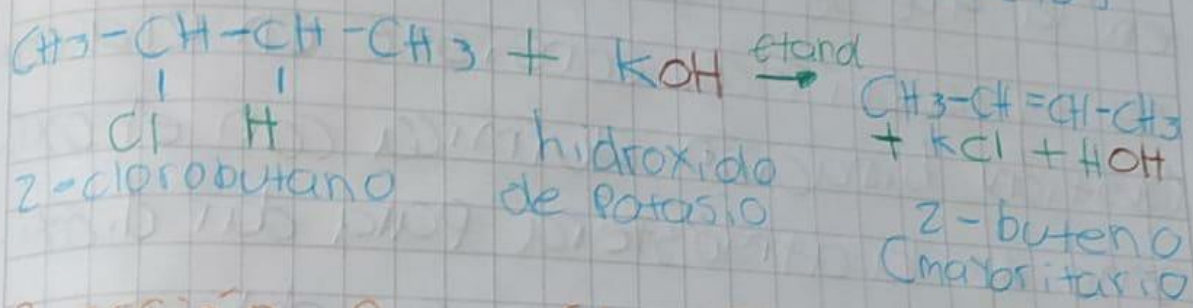 CH3-CH-CH-CH3 + KOH etanol → CH3-CH=CH-CH3
Cl H + KCl + HOH
2-clorobutano hidroxido de potasio 2-buteno
(mayoritario